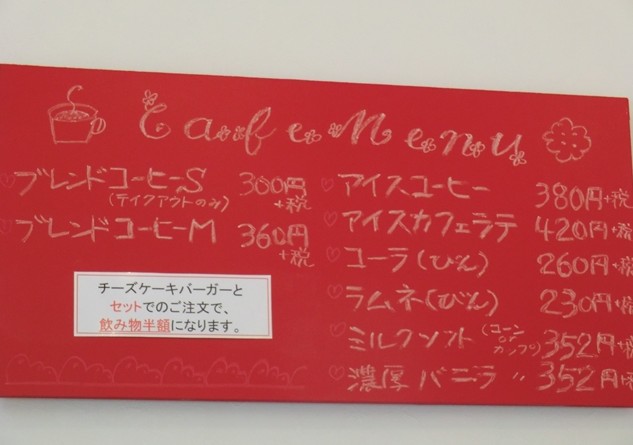 Cafe Menu
ブレンドコーヒーS 300円+税
(テイクアウトのみ)
ブレンドコーヒーM 360円+税
チーズケーキバーガーと
セットでのご注文で、
飲み物半額になります。
アイスコーヒー 380円+税
アイスカフェラテ 420円+税
コーラ(びん) 260円+税
ラムネ(びん) 230円+税
ミルクソフト(コーンorカップ) 352円+税
濃厚バニラ 〃 352円+税